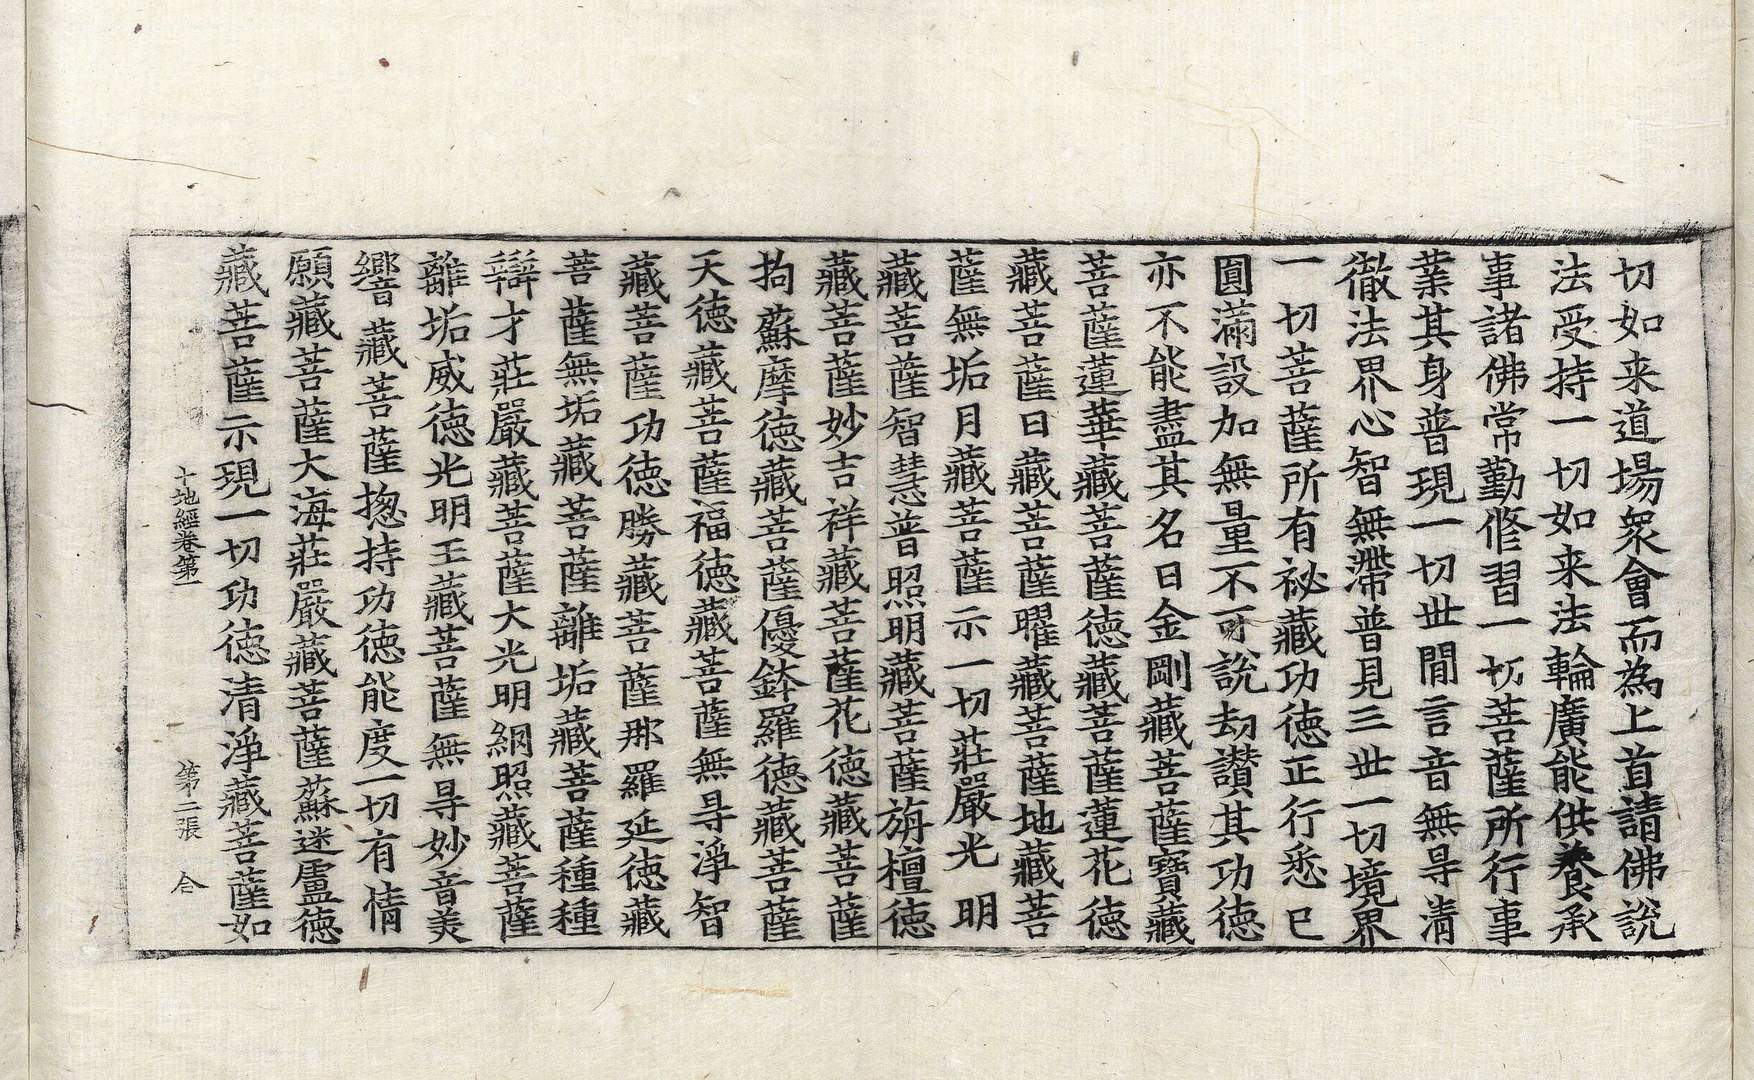 切如来道場衆會而為上首請佛說
法受持一切如来法輪廣能供養承
事諸佛常勤修習一切菩薩所行事
業其身普現一切世間言音無导清
徹法界心智無滯普見三世一切境界
一切菩薩所有祕藏功徳正行悉已
圓滿設加無量不可說劫讃其功徳
亦不能盡其名曰金剛藏菩薩寶藏
菩薩蓮華藏菩薩徳藏菩薩蓮花徳
藏菩薩日藏菩薩曜藏菩薩地藏菩
薩無垢月藏菩薩示一切莊嚴光明
藏菩薩智慧普照明藏菩薩旃檀徳
藏菩薩妙吉祥藏菩薩花徳藏菩薩
拘蘇摩徳藏菩薩優鉢羅徳藏菩薩
天徳藏菩薩福徳藏菩薩無导淨智
藏菩薩功徳勝藏菩薩那羅延徳藏
菩薩無垢藏菩薩離垢藏菩薩種種
辯才莊嚴藏菩薩大光明網照藏菩薩
離垢威徳光明王藏菩薩無导妙音美
響藏菩薩揔持功徳能度一切有情
願藏菩薩大海莊嚴藏菩薩蘇迷盧徳
藏菩薩示現一切功徳清淨藏菩薩如
十地經卷第一 第二張 合